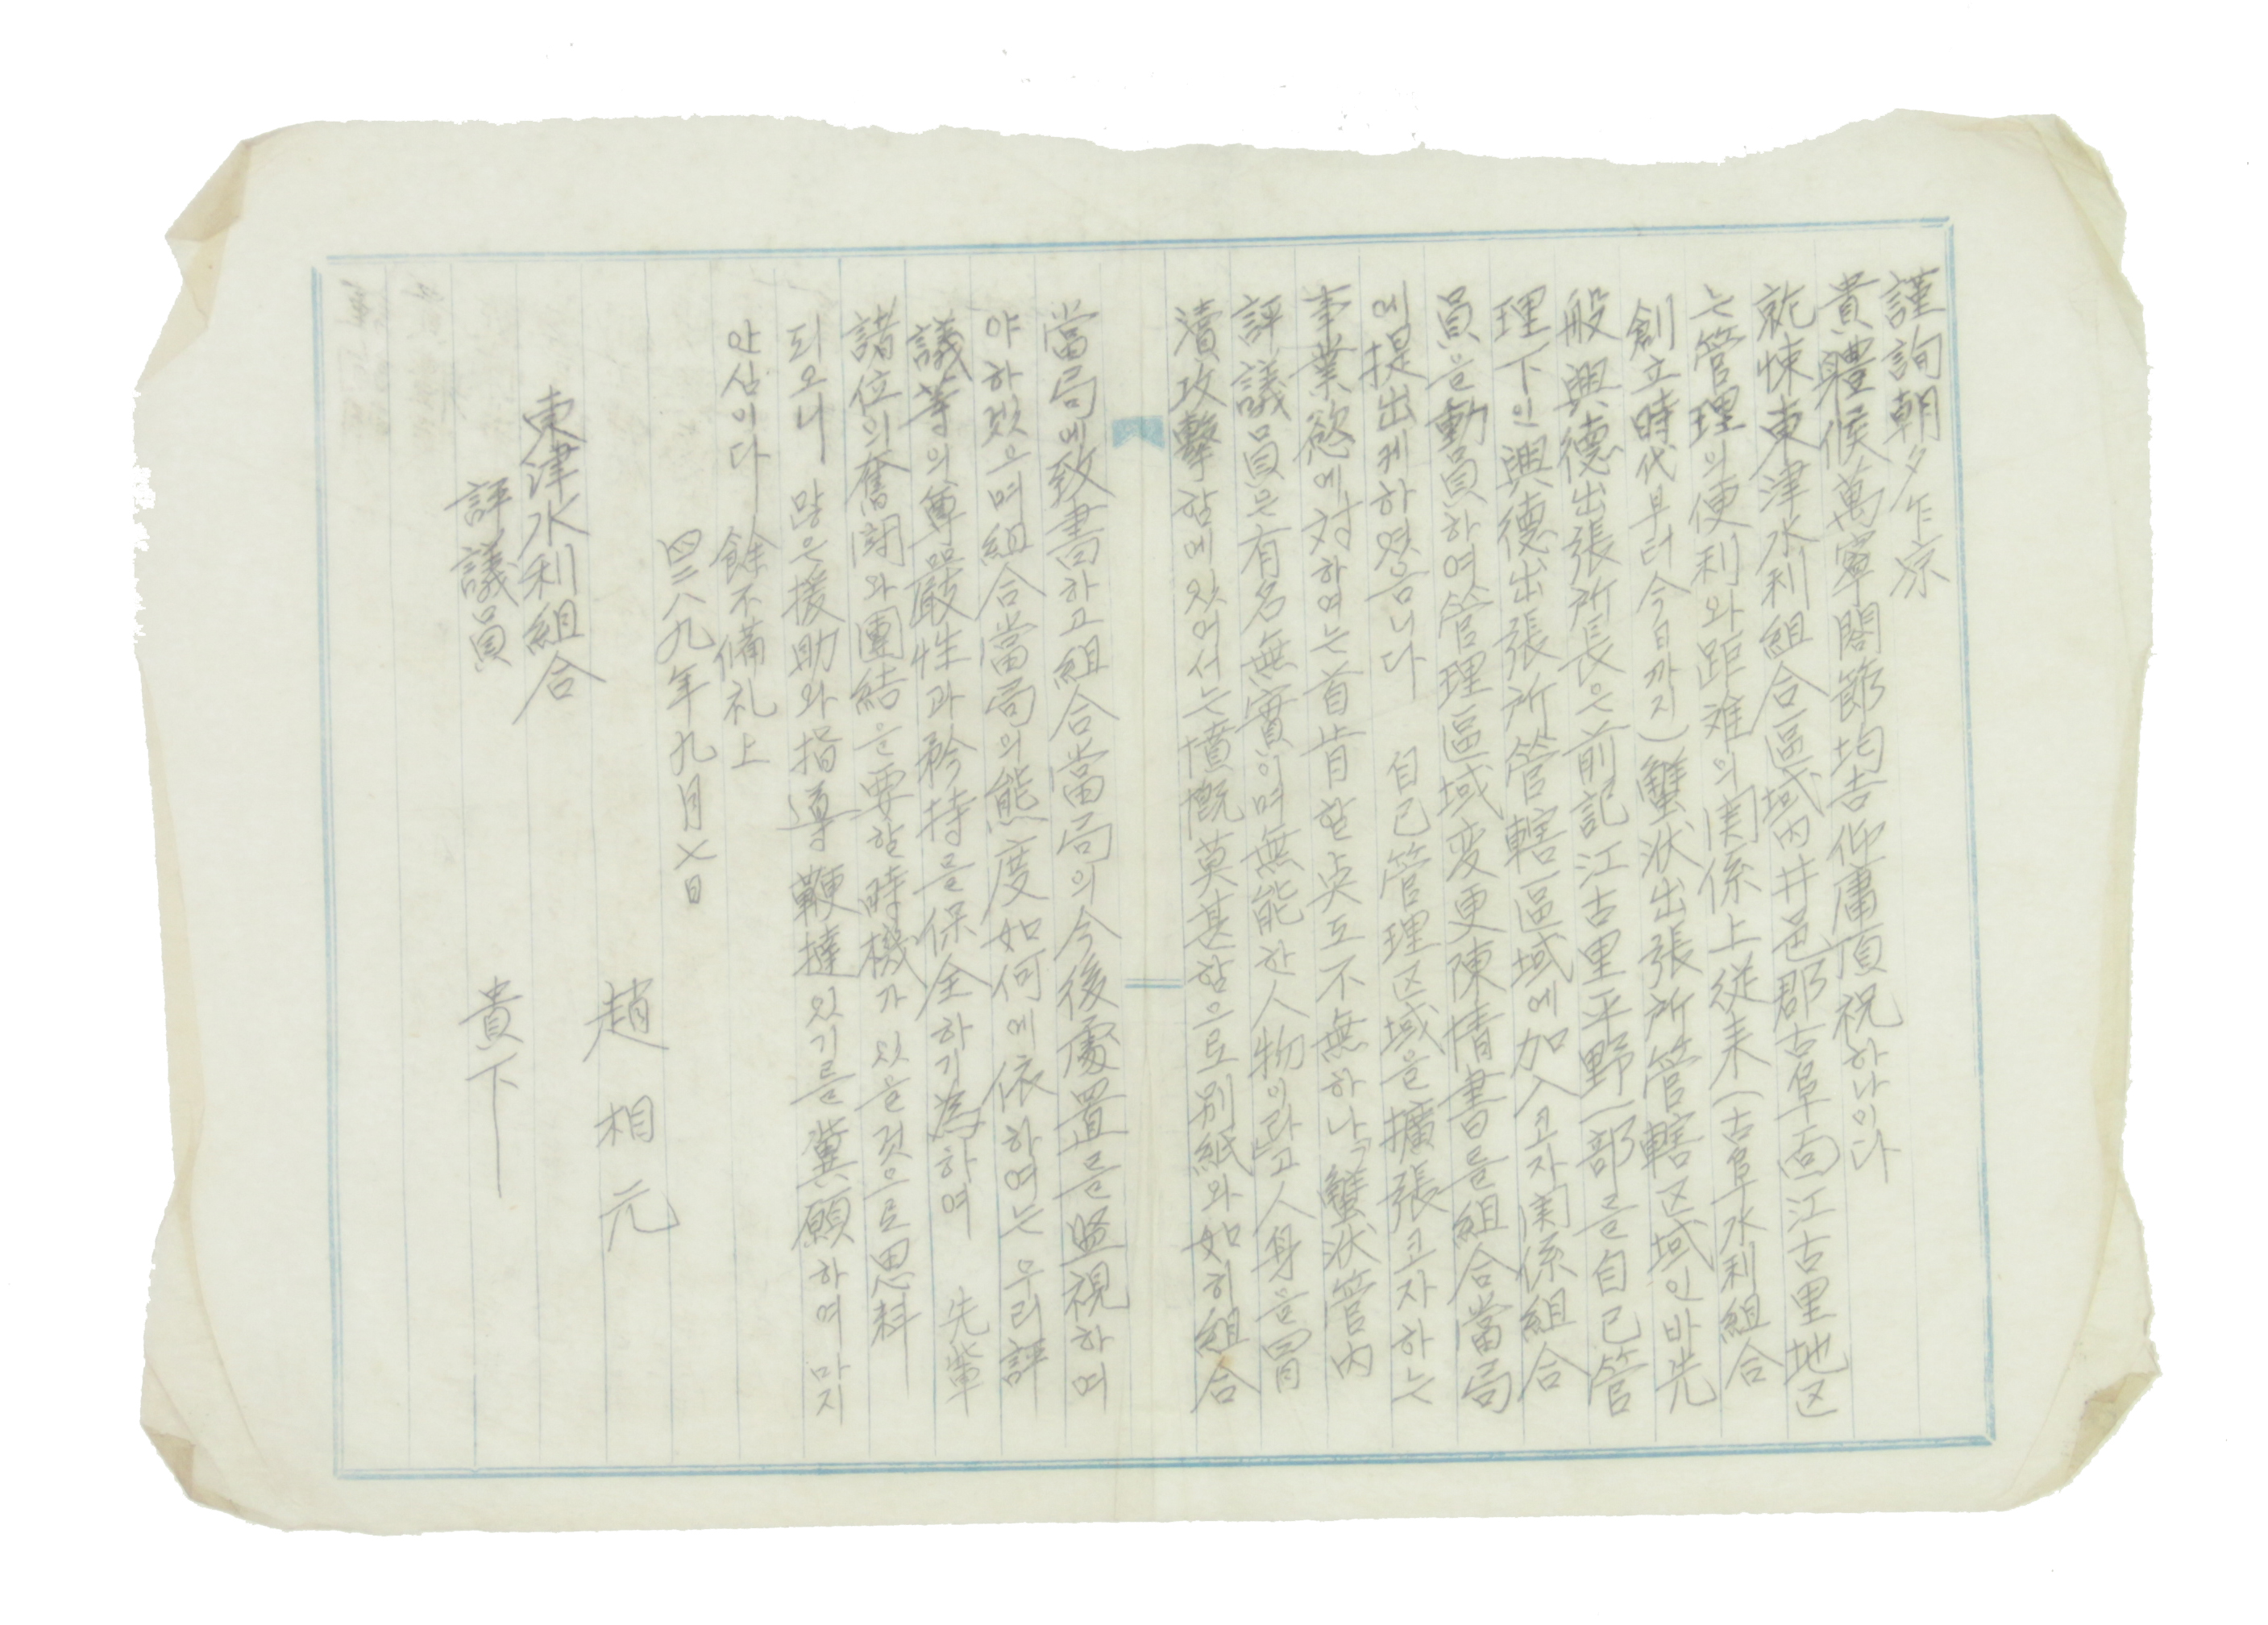 謹詢朝夕乍凉
貴軆候萬寧閤節均吉仰庸頂祝하나이다
就悚東津水利組合區域內井邑郡古阜面江古里地区
는管理의便利와距離의関係上從来(古阜水利組合
創立時代부터今日까지)蟹状出張所管轄区域인바先
般興德出張所長은前記江古里平野一部를自己管
理下인興德出張所管轄區域에加入코자関係組合
員을動員하여管理區域変更陳情書를組合當局
에提出케하였읍니다 自己管理区域을擴張코자하는
事業慾에対하여는首肯할点도不無하나「蟹状管內
評議員은有名無實이며無能한人物이라」고人身을冒
瀆攻擊함에있어서는憤慨莫甚함으로別紙와如히組合
當局에致書하고組合當局의今後處置를監視하여
야하겠으며組合當局의態度如何에依하여는우리評
議等의尊嚴性과矜持를保全하기為하여 先輩
諸位의奮鬪와團結을要할時機가있을것으로思料
되오니 많은援助와指導鞭撻있기를冀願하여마지
안심이다 餘不備礼上
四二八九年九月乂日
趙相元
東津水利組合
評議員 貴下